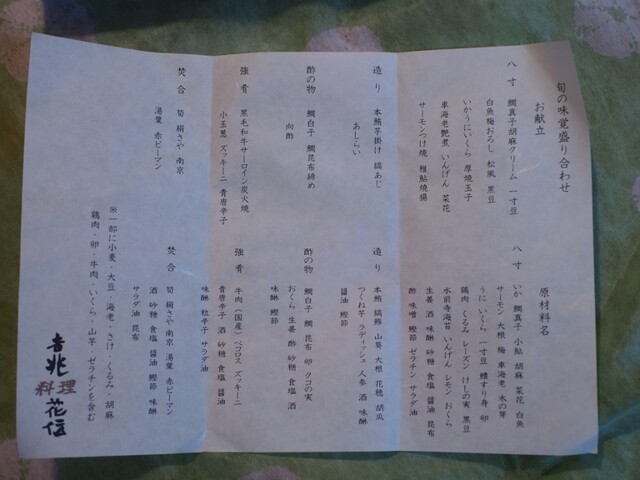 旬の味覚盛り合わせ
お献立
八寸 鯛真子胡麻クリーム 一寸豆
白魚梅おろし 松風 黒豆
いかうにいくら 厚焼玉子
車海老艶煮 いんげん 菜花
サーモンつけ焼 稚鮎焼揚
造り 本鮪芋掛け 縞あじ
あしらい
酢の物 鯛白子 鯛昆布締め
向酢
強肴 黒毛和牛サーロイン炭火焼
小玉葱 ズッキーニ 青唐辛子
焚合 筍 絹さや 南京
湯葉 赤ピーマン
原材料名
八寸 いか 鯛真子 小鮎 胡麻 菜花 白魚
サーモン 大根 梅 車海老 木の芽
うに いくら 一寸豆 鱧すり身 卵
鶏肉 くるみ レーズン けしの実 黒豆
水前寺海苔 いんげん レモン おくら
生姜 酒 味醂 砂糖 食塩 醤油 昆布
酢 味噌 鰹節 ゼラチン サラダ油
造り 本鮪 縞鯵 山葵 大根 花穂 胡瓜
つくね芋 ラディッシュ 人参 酒 味醂
醤油 鰹節
酢の物 鯛白子 鯛 昆布 卵 クコの実
おくら 生姜 酢 砂糖 食塩 酒
味醂 鰹節
強肴 牛肉（国産） ペコロス ズッキーニ
青唐辛子 酒 砂糖 食塩 醤油
味醂 粒辛子 サラダ油
焚合 筍 絹さや 南京 湯葉 赤ピーマン
酒 砂糖 食塩 醤油 鰹節 味醂
サラダ油 昆布
※一部に小麦・大豆・海老・さけ・くるみ・胡麻
鶏肉・卵・牛肉・いくら・山芋・ゼラチンを含む
吉兆
料理
花伝